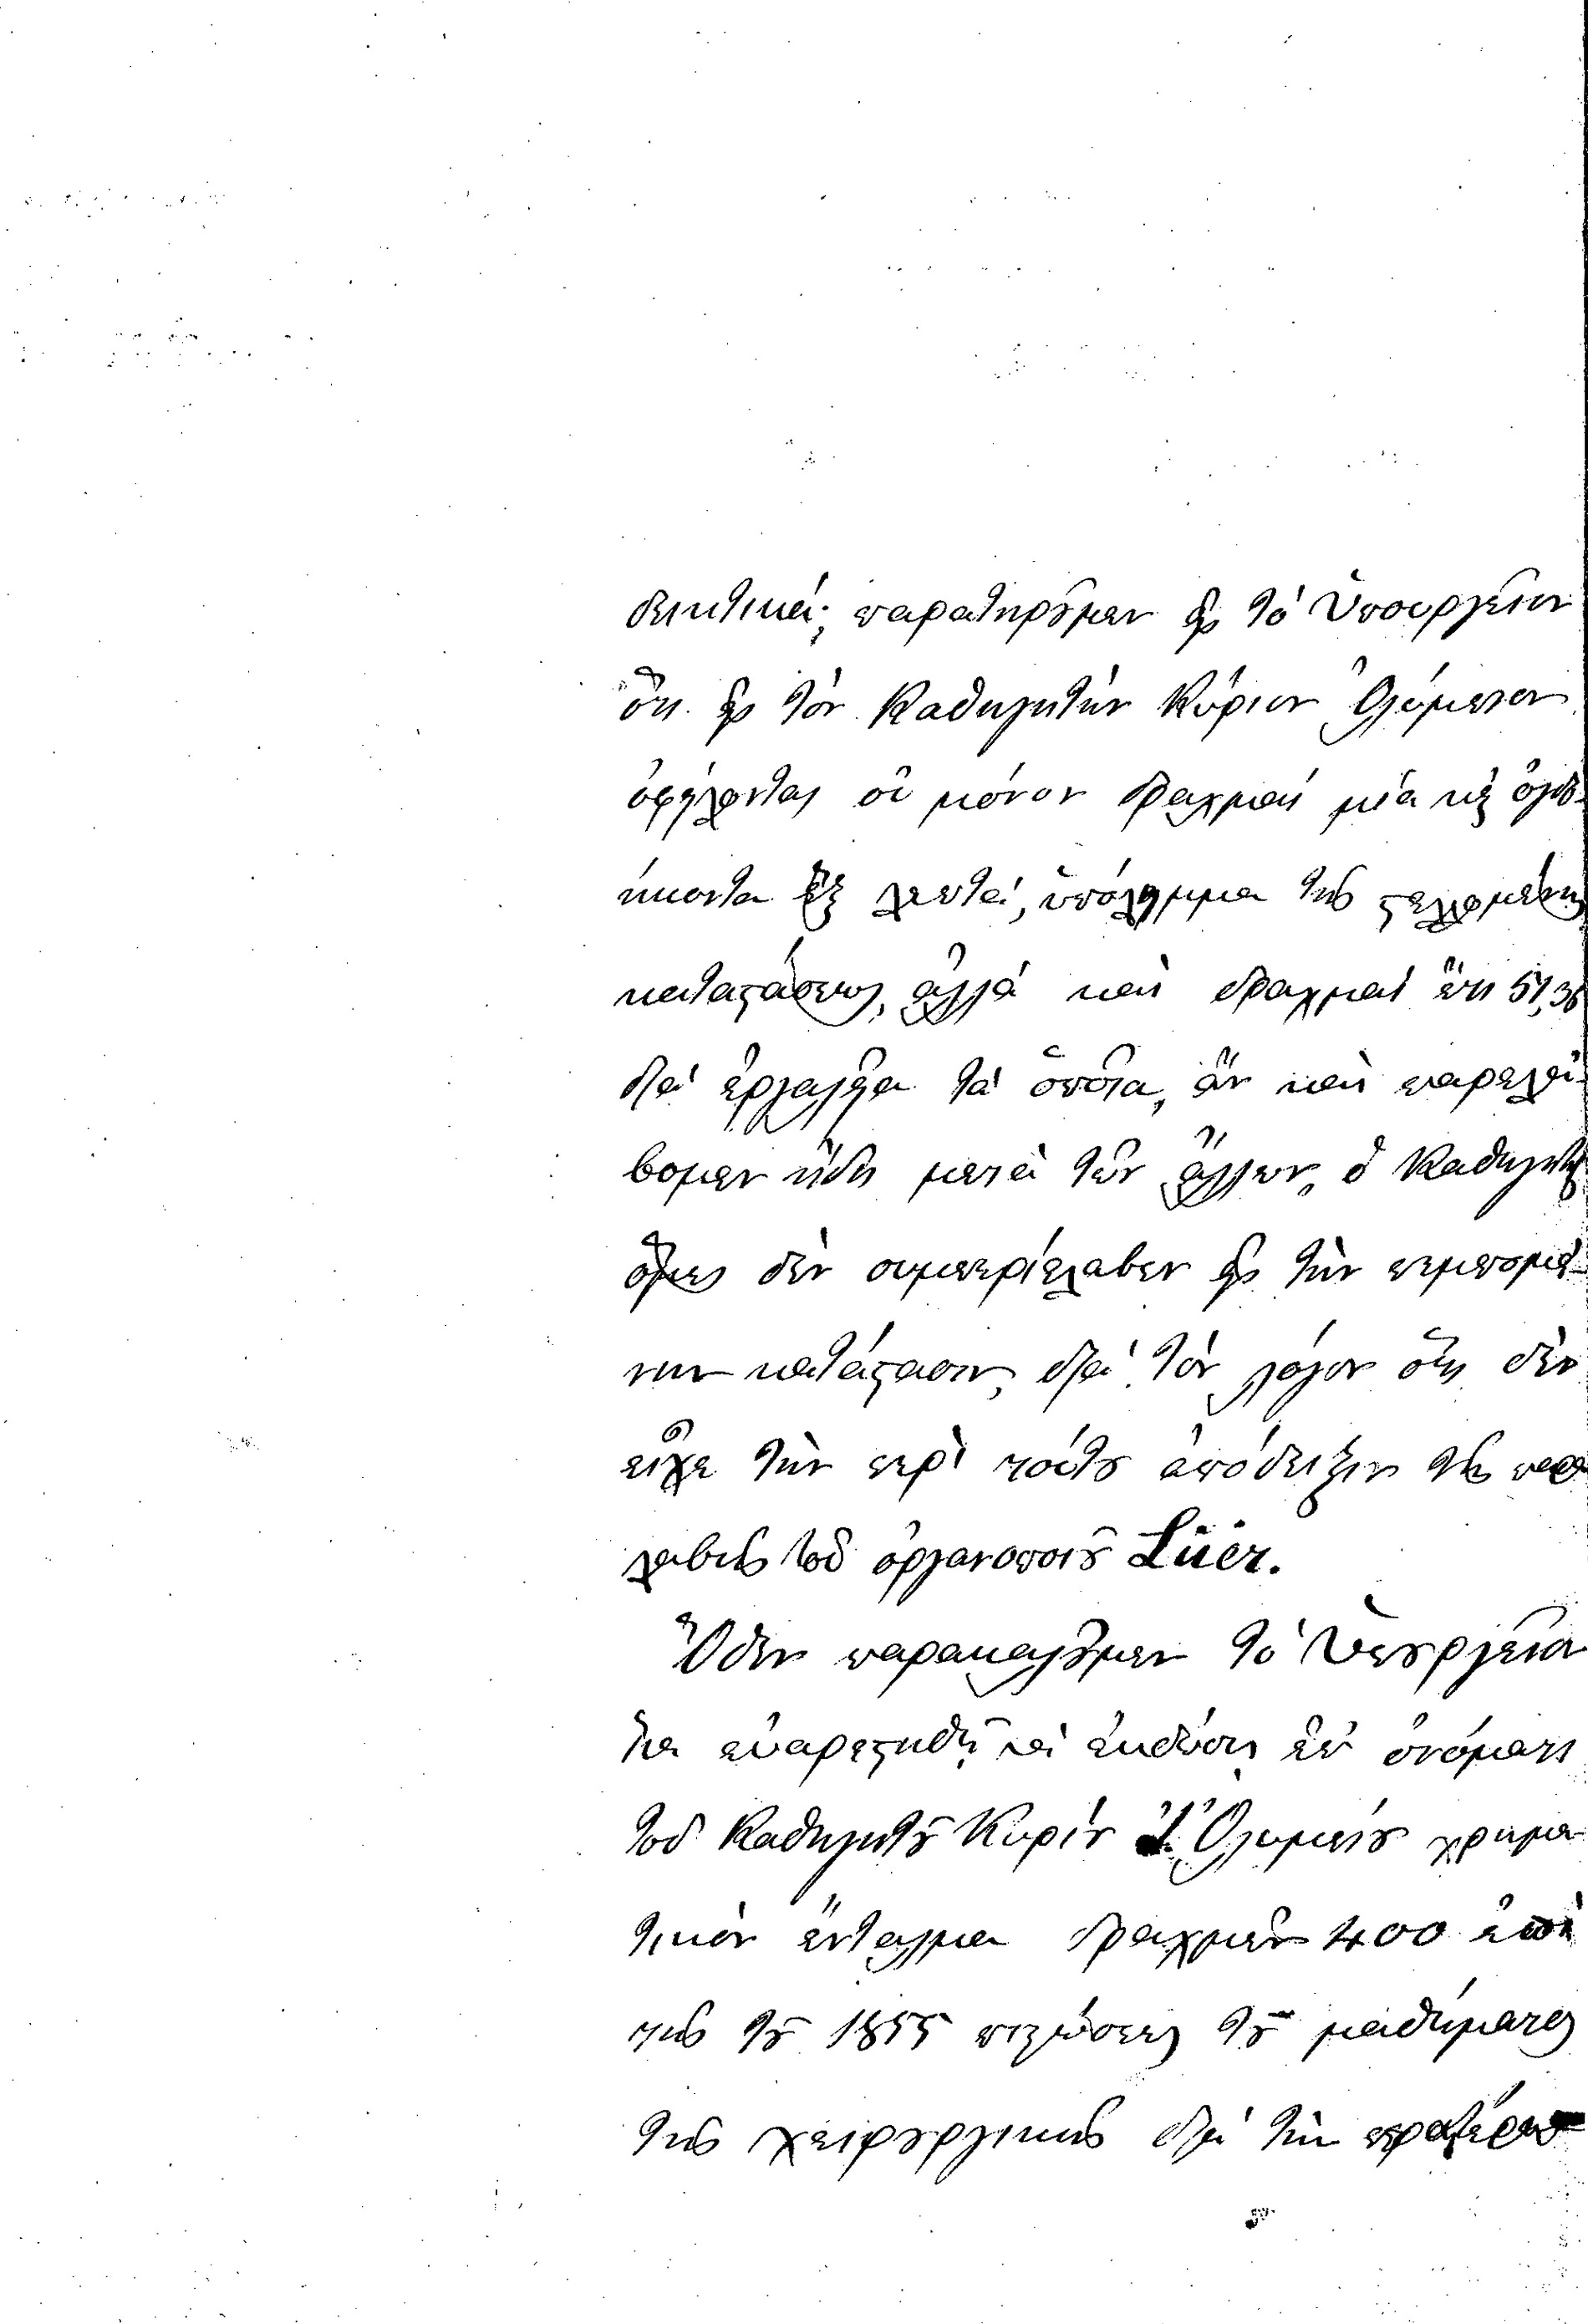 δεικτικά· παρατηροῦμεν εἰς τὸ Ὑπουργεῖον
ὅτι εἰς τὸν Καθηγητὴν Κύριον Ὀλύμπιον
ὀφείλονται οὐ μόνον δραχμαὶ μία καὶ ὀγδο-
ήκοντα ἓξ λεπτά, ὑπόλειμμα τῆς στελλομένης
καταστάσεως, ἀλλὰ καὶ δραχμαὶ ἔτι 51,36
διὰ ἐργαλεῖα τὰ ὁποῖα, ἂν καὶ παρελά-
βομεν ἤδη μετὰ τῶν ἄλλων, ὁ Καθηγητὴς
ὅμως δὲν συμπεριέλαβεν εἰς τὴν πεμπομέ-
νην κατάστασιν, διὰ τὸν λόγον ὅτι δὲν
εἶχε τὴν περὶ τούτου ἀπόδειξιν τῆς παρα
λαβῆς τοῦ ὀργανοποιοῦ Lüer.
Ὅθεν παρακαλοῦμεν τὸ Ὑπουργεῖον
ἵνα εὐαρεστηθῇ νὰ ἐκδώσῃ ἐπ' ὀνόματι
τοῦ Καθηγητοῦ Κυρίου Ὀλυμπίου χρημα
τικὸν ἔνταλμα δραχμῶν 400 ἐπὶ
τῆς τοῦ 1855 πιστώσεως τοῦ μαθήματος
τῆς χειρουργικῆς διὰ τὴν